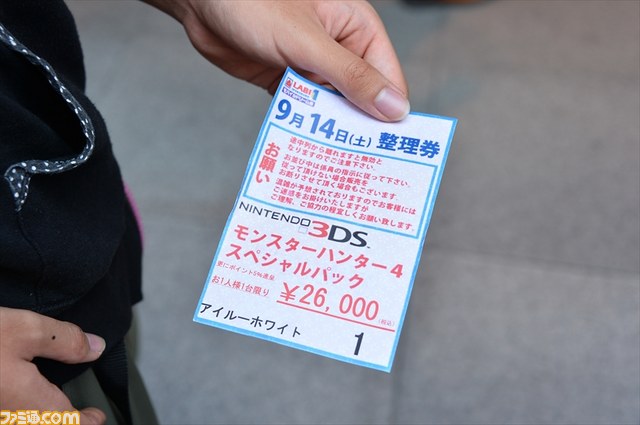 LABI1
9月14日(土) 整理券
お願い
途中列から離れますと無効と
なりますのでご注意下さい。
お並び中は係員の指示に従って下さい。
従って頂けない場合販売を
お断りさせて頂く場合もございます。
混雑が予想されておりますのでお客様には
ご迷惑をお掛けいたしますが
ご理解、ご協力の程宜しくお願い致します。
NINTENDO3DS
モンスターハンター4
スペシャルパック
更にポイント5%進呈
お1人様1台限り ¥26,000
(税込)
アイルーホワイト 1
ファミ通.com